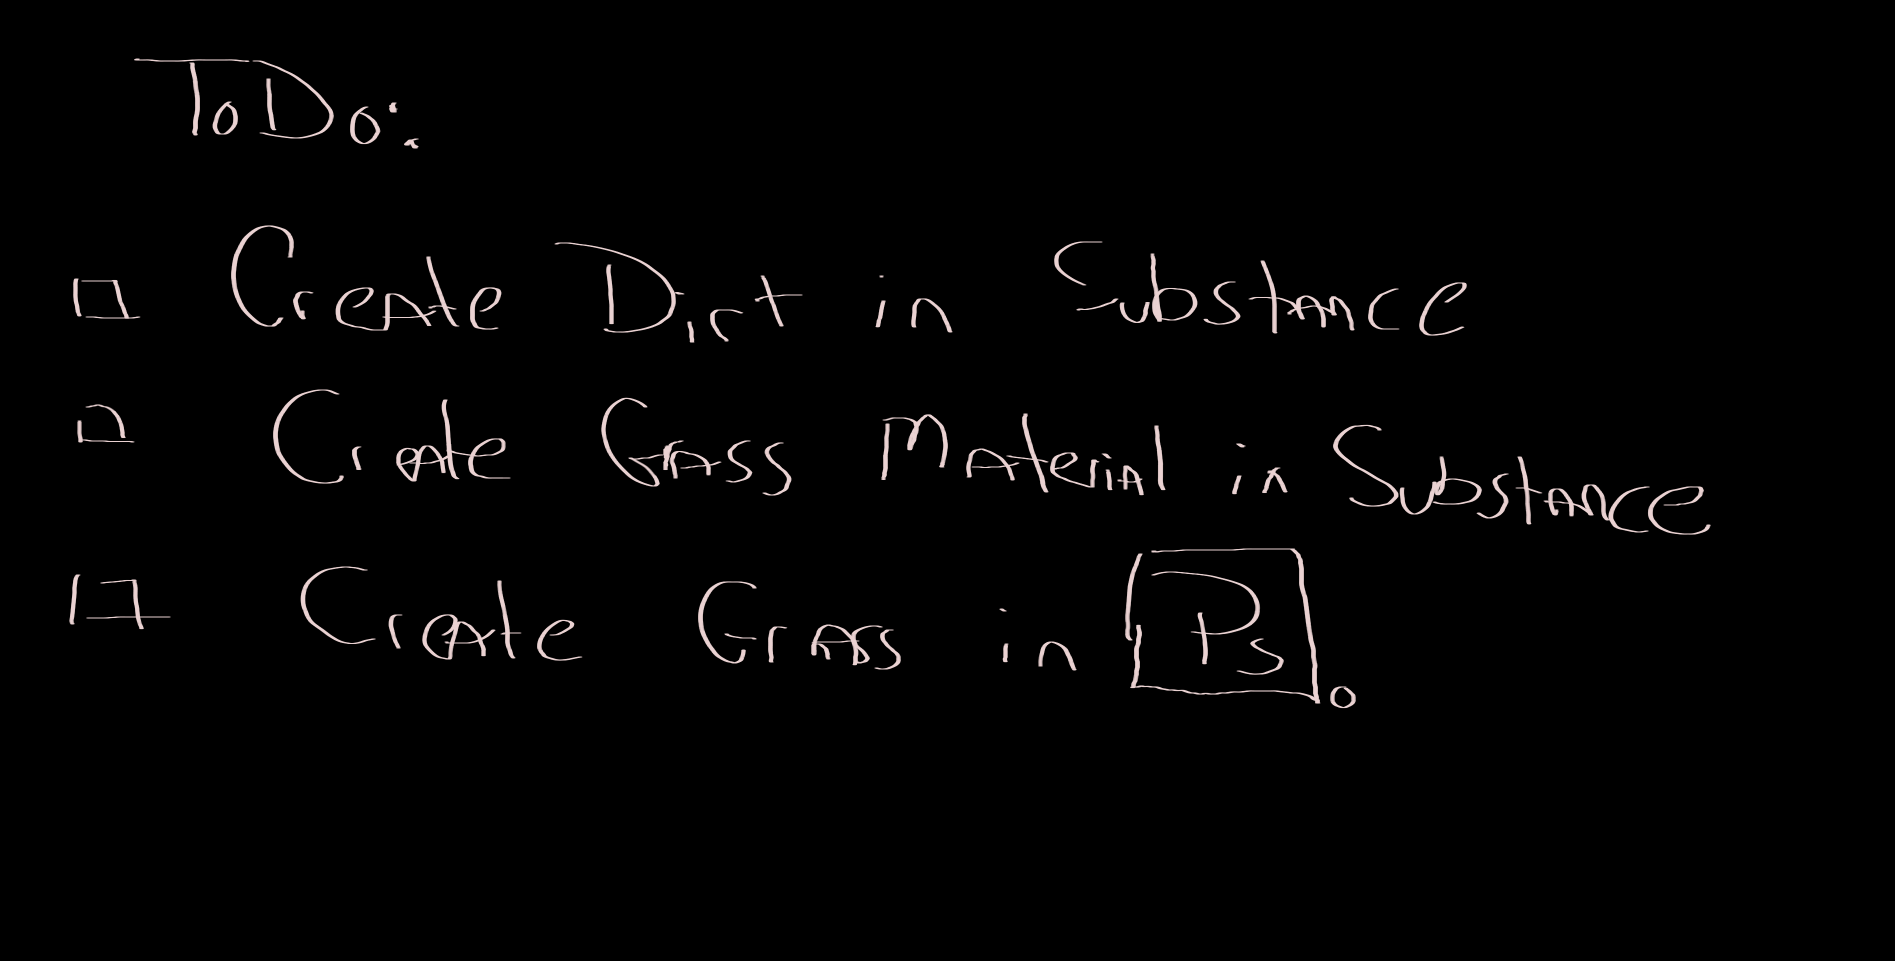 ToDo:
□ Create Dirt in Substance
□ Create Grass Material in Substance
□ Create Grass in Ps.